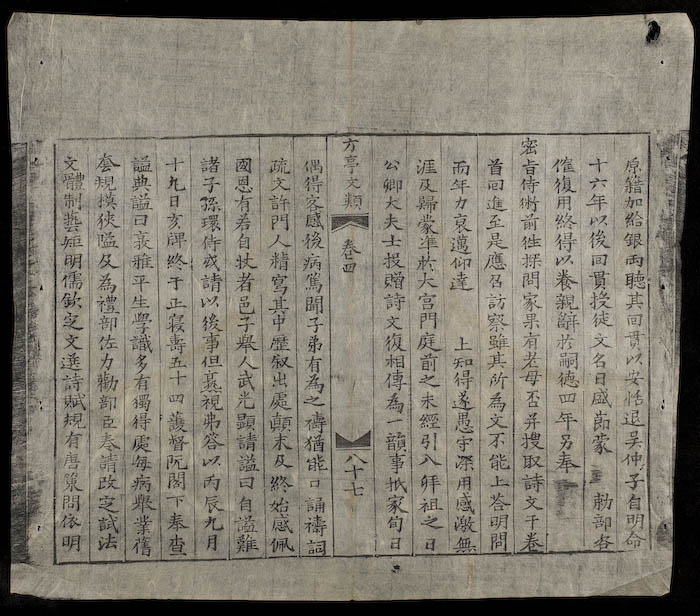 原籍加給銀両聽其回貫以安恬退吳仲子自明命
十六年以後回貫授徒文名日盛茆蒙 勅部各
催復用終得以養親辭於嗣德四年另奉
密旨侍衛前徃採問家果有老母否并搜取詩文千卷
首回進至是應召訪察雖其所為文不能上答明問
而年力衰邁仰達 上知得遂愚守深用感激無
涯及歸蒙準於大宫門庭前之未經引入拜祖之日
公卿大夫士投贈詩文復相傳為一韻事抵家旬日
方亭文類 卷四 八十七
偶得客感後病篤聞子弟有為之禱猶能口誦禱詞
疏文許門人精寫其中歷叙出處顛末及終始感佩
國恩有若自狀者邑子舉人武光顯請謚曰自謚難
諸子孫環侍或請以後事但熹視弗答以丙辰九月
十九日亥牌終于正寢壽五十四護督阮閣下奉查
謚典謚曰哀雅平生學識多有獨得處每病舉業舊
套規摸狹隘及為禮部佐力勸部臣奏請改定試法
文體制藝矩明儒欽定文選詩賦規有唐策問依明